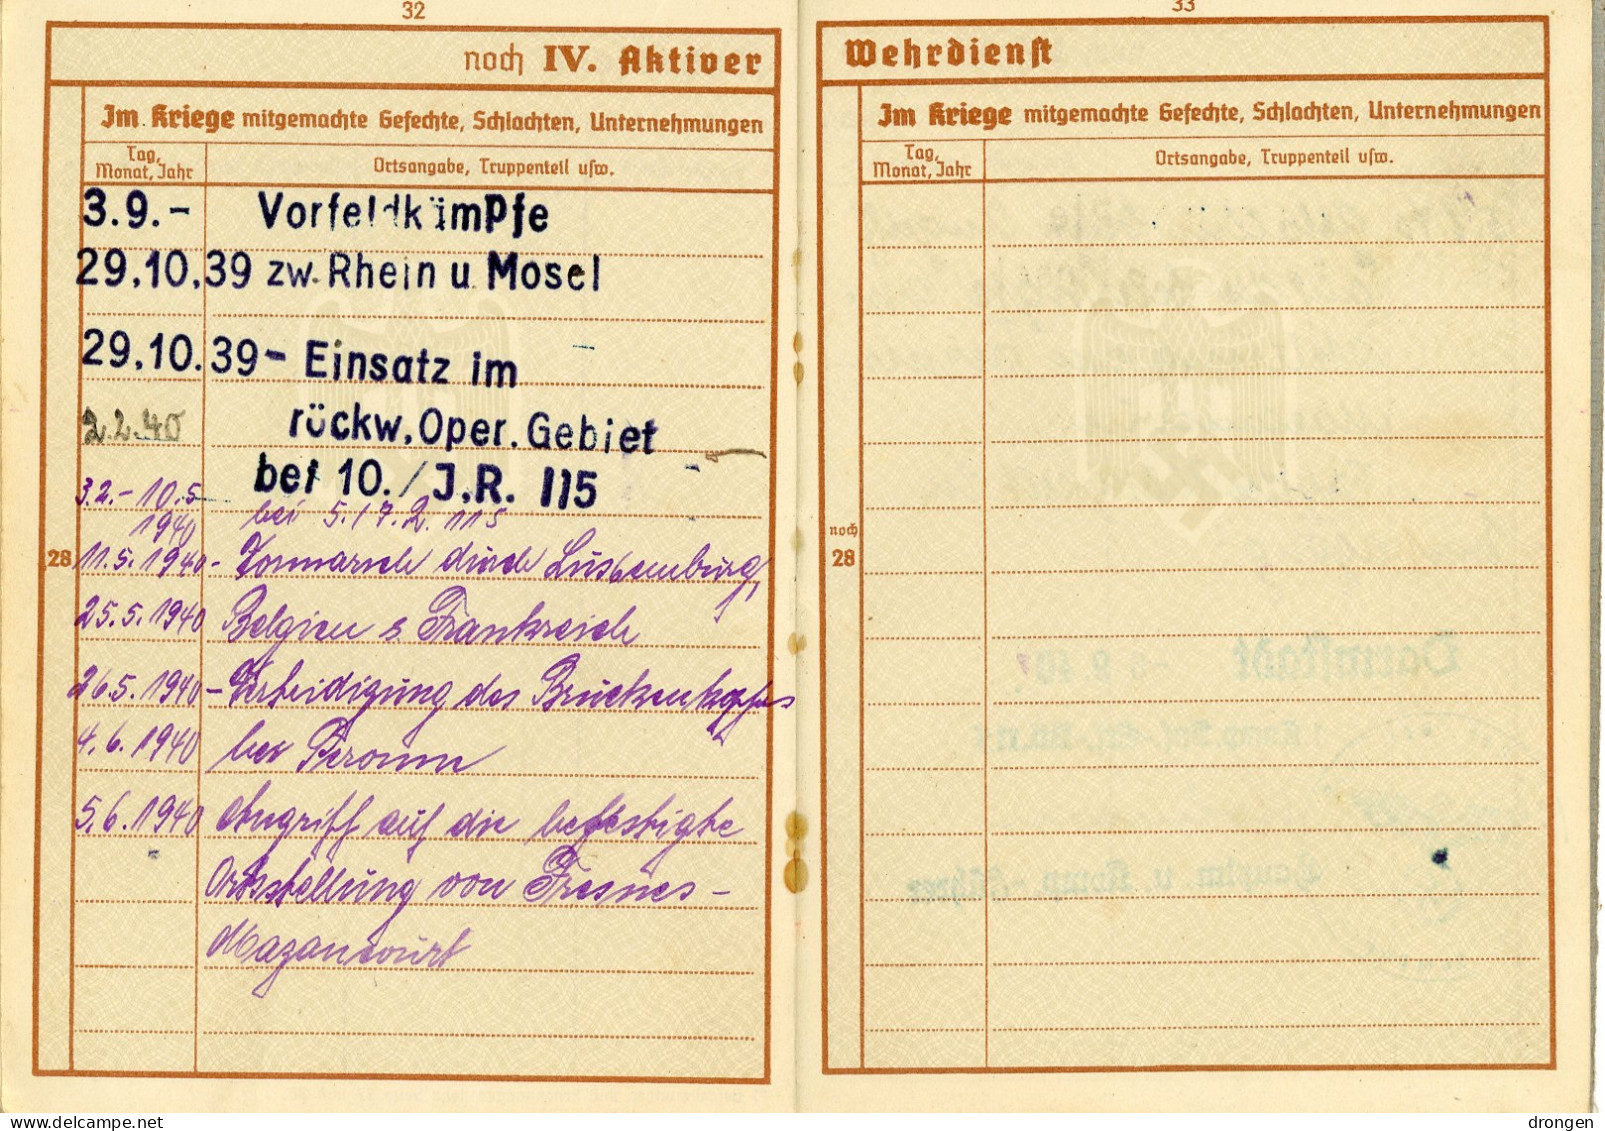 32
noch IV. Aktiver
Im Kriege mitgemachte Gefechte, Schlachten, Unternehmungen
Tag, Monat, Jahr
Ortsangabe, Truppenteil usw.
3.9.- Vorfeldkämpfe
29.10.39 zw. Rhein u. Mosel
29.10.39- Einsatz im
2.2.40 rückw. Oper. Gebiet
bei 10./J.R. 115
3.2.-10.5 bei 5./J.R. 115
1940
28
11.5.1940- Vormarsch durch Luxemburg,
25.5.1940 Belgien & Frankreich
26.5.1940- Verteidigung des Brückenkopfes
4.6.1940 bei Peronne
5.6.1940 Angriff auf die befestigte
Ortsstellung von Fresnes-
Mazancourt
33
Wehrdienst
Im Kriege mitgemachte Gefechte, Schlachten, Unternehmungen
Tag, Monat, Jahr
Ortsangabe, Truppenteil usw.
noch
28
www.delcampe.net
drongen